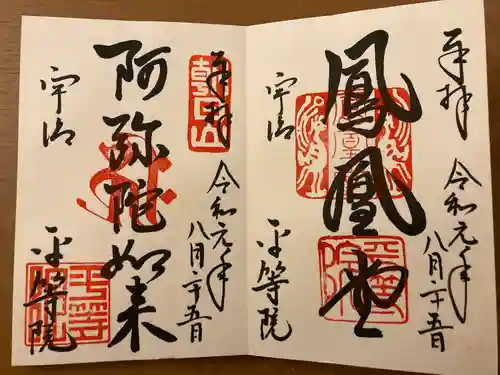 奉拝
令和元年
八月二十五日
鳳凰堂
宇治
平等院
奉拝
令和元年
八月二十五日
阿弥陀如来
宇治
平等院
朝日山
平等院
平等院